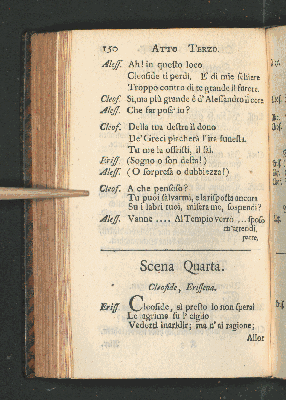 150 ATTO TERZO.
Aless. Ah! in questo loco
Cleofide ti perdi. Di mie schiere
Troppo contro di te grande il furore.
Cleof. Si, ma più grande è d'Alessandro il core
Aless. Che far poss' io?
Cleof. Della tua destra il dono
De' Greci placherà l'ira funesta.
Tu me la offristi, il sai.
Eriss. (Sogno o son desta!)
Aless. (O sorpresa o dubbiezza!)
Cleof. A che pensoso?
Tu puoi salvarmi, e la risposta ancora
Su i labri tuoi, misera me, sospendi?
Aless. Vanne .... Al Tempio verrò ... sposo
m'attendi,
parte.
Scena Quarta.
Cleofide, Erissena.
Eriss. Cleofide, sì presto io non sperai
Le lagrime su l' ciglio
Vederti inaridir; ma n'ai ragione;
Allor